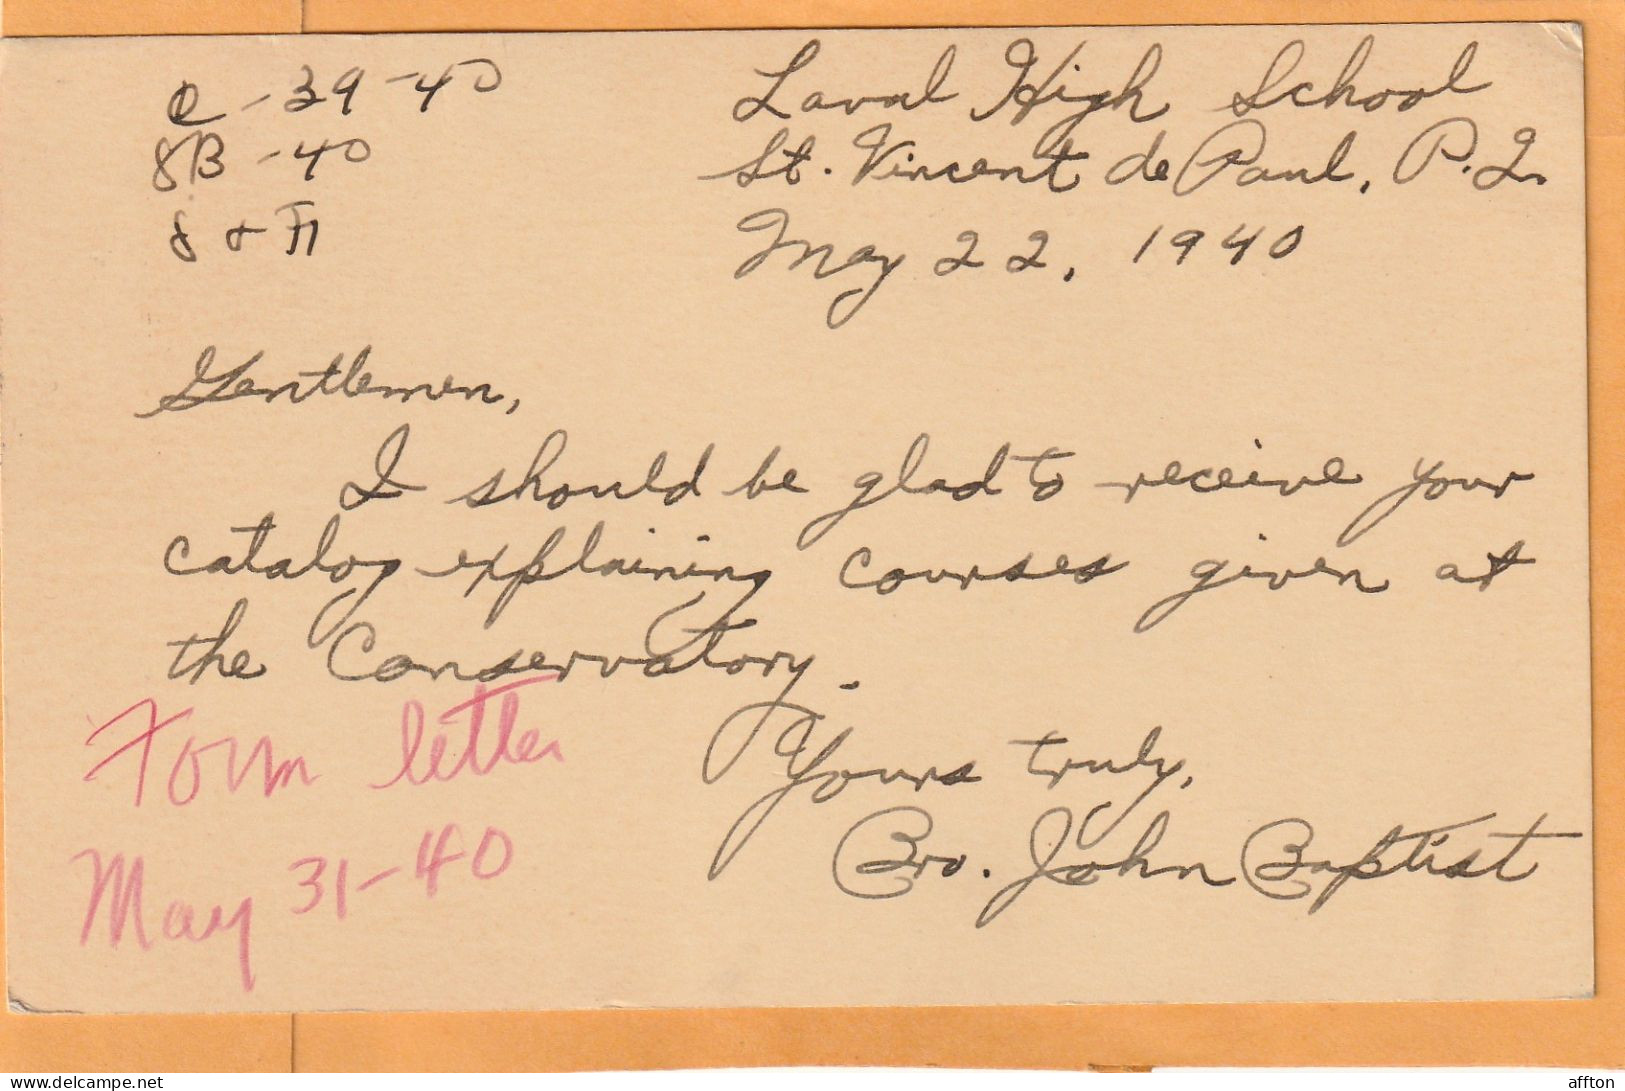 Laval High School
St. Vincent de Paul, P.Q.
May 22, 1940
-39-40
8B-40
Gentlemen,
I should be glad to receive your
catalog explaining courses given at
the Conservatory.
Yours truly,
Bro. John Baptist
Form letter
May 31-40
delcampe.net
affton